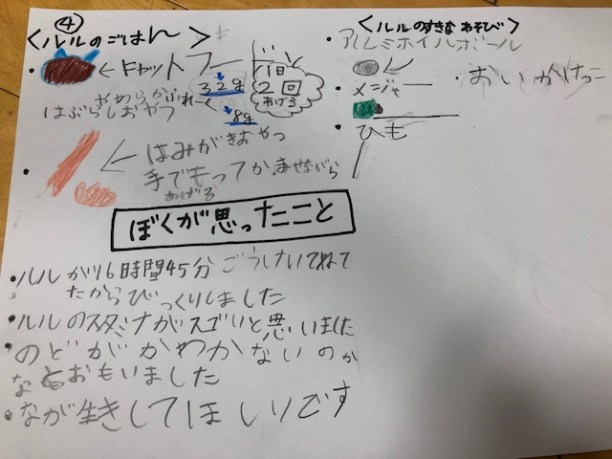 ④
<ルルのごはん>
・キャットフード
32g
8g
1日
2回
あげる
はぶらしおやつ
・はみがきおやつ
手でもってかませながら
あげる
<ルルのすきなあそび>
・アルミホイルボール
・メジャー
・おいかけっこ
・ひも
ぼくが思ったこと
・ルルが16時間45分ごうけいでねて
たからびっくりしました
・ルルのスタミナがスゴいと思いました
・のどがかわかないのか
なとおもいました
・なが生きしてほしいです